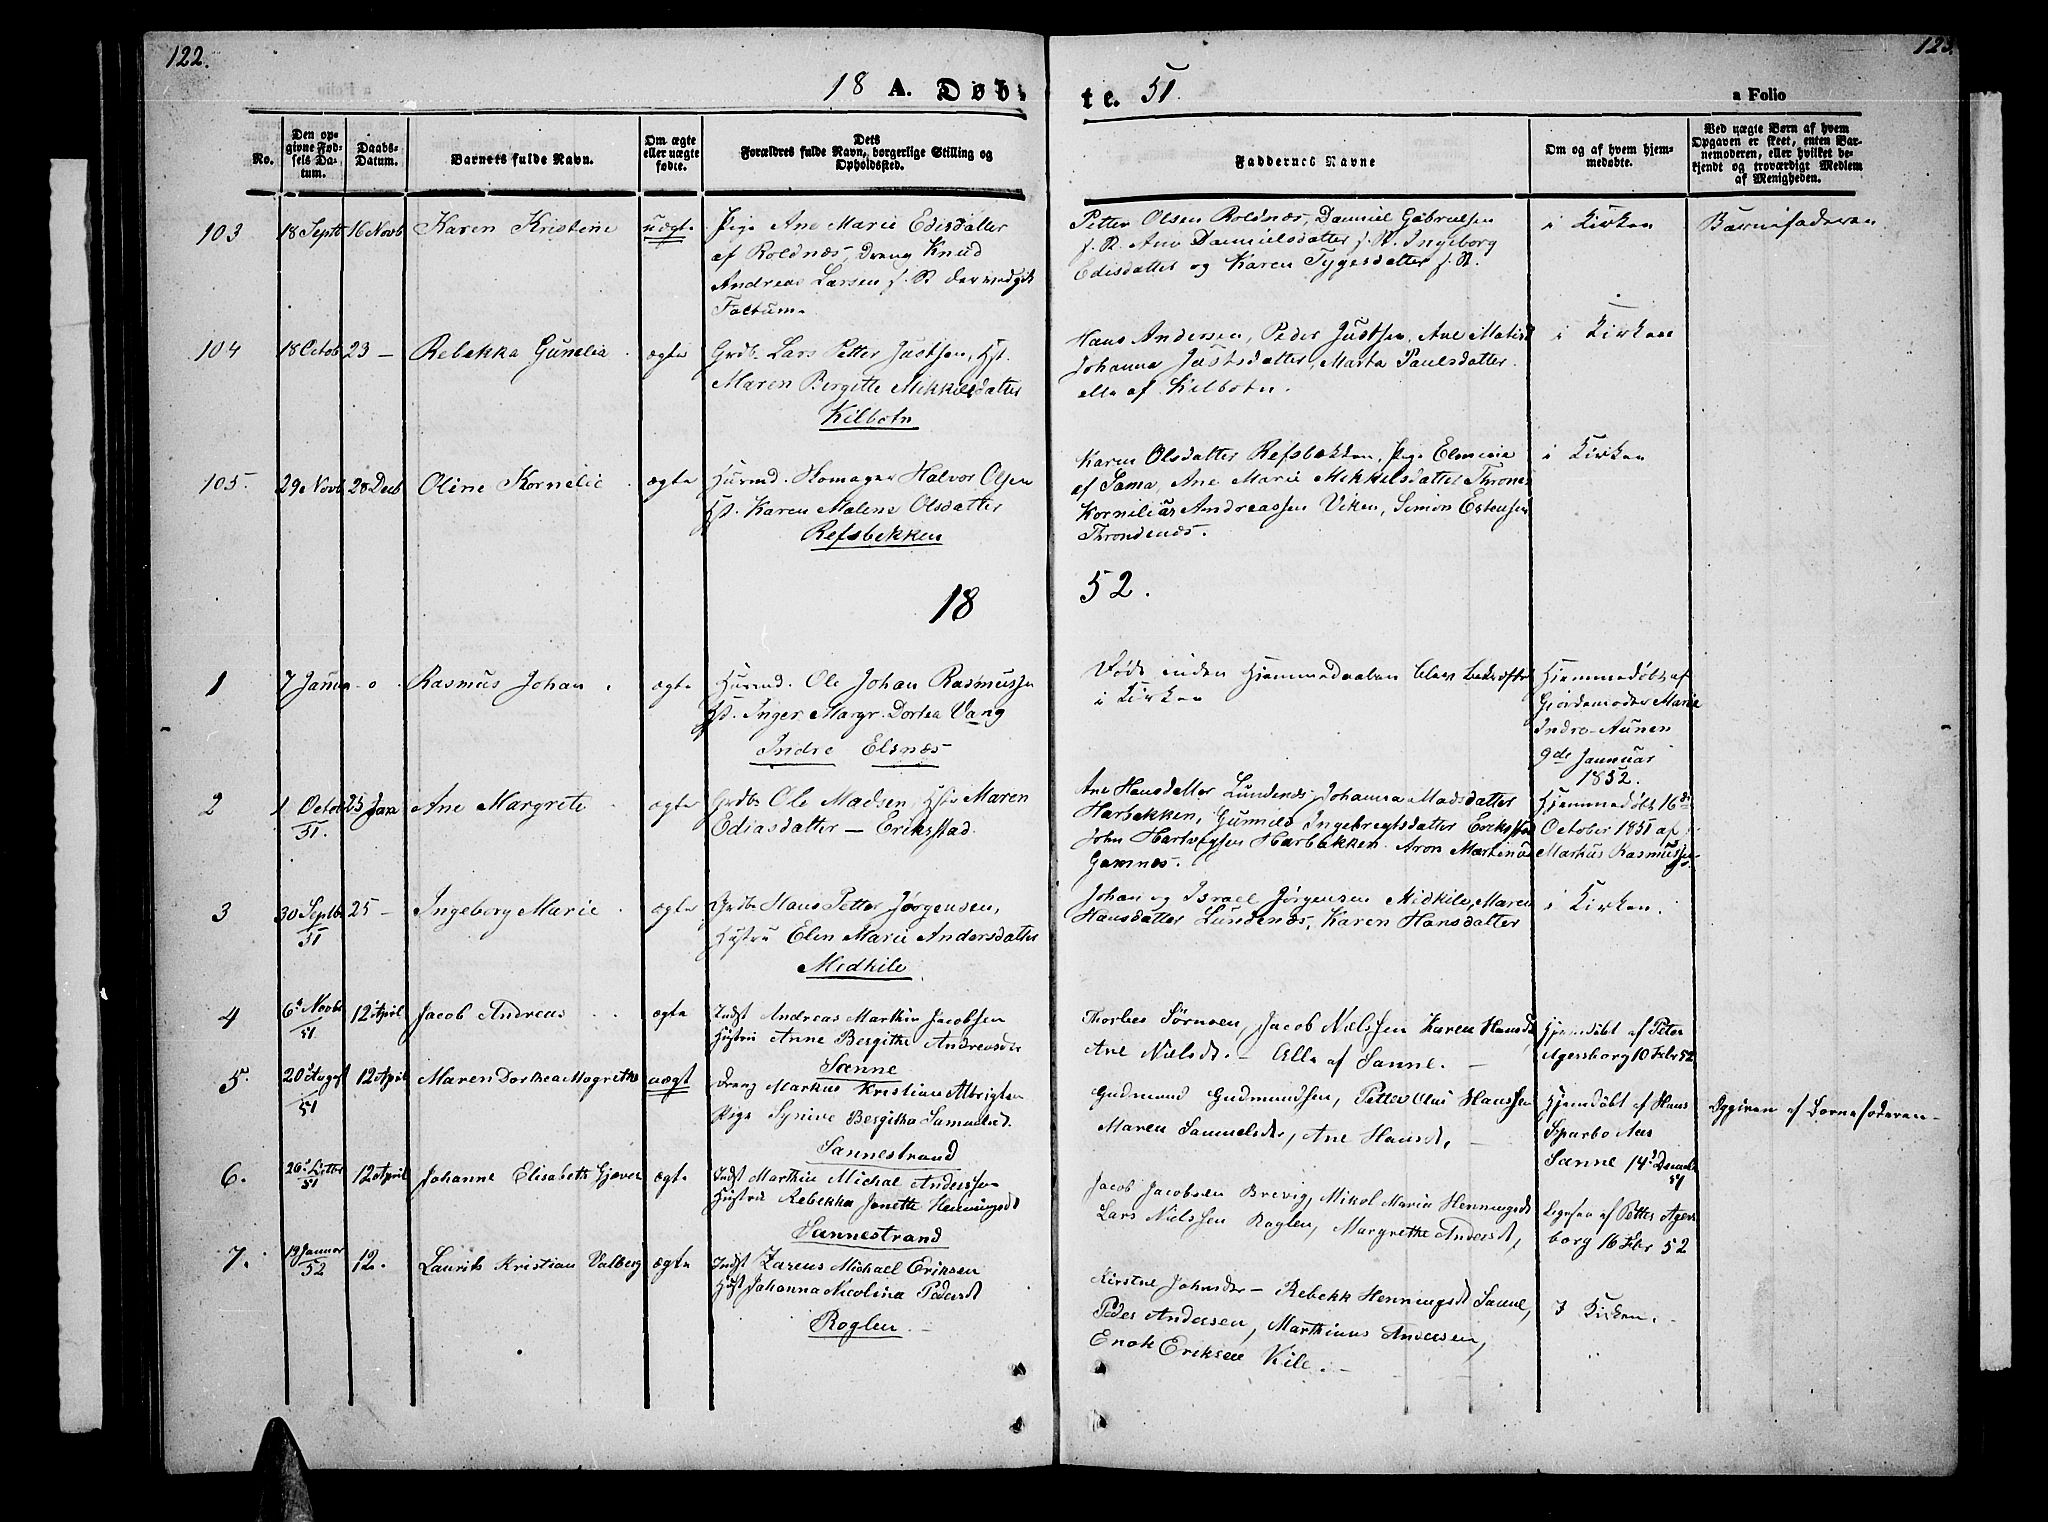 122.
123.
18 A. Døb-
te. 51.
a Folio
No.
Den op-
givne Fød-
sels Da-
tum.
Daabs-
Datum.
Barnets fulde Navn.
Om ægte
eller uægte
fødte.
Dets
Forældres fulde Navn, borgerlige Stilling og
Opholdssted.
Faddernes Navne
Om og af hvem hjem-
medøbte.
Ved uægte Børn af hvem
Opgaven er skeet, enten Bar-
nemoderen, eller hvilket be-
kjendt og troværdigt Medlem
af Menigheden.
103 18 Septb 16 Novb Karen Kristine uægte Pige Ane Marie Edisdatter
af Roldnæs, Dreng Knud
Andreas Larsen f. St
Factum.
Petter Olsen Roldnæs, Daniel Gabrielsen
f. St. Ane Danielsdatter f. St. Ingeborg
Edisdatter og Karen Tygesdatter f. St.
i Kirken
Barnefaderen
104 18 Octob 23 - Rebekka Gunelia ægte Grdb. Lars Petter Justsen, Hst.
Maren Bergitte Mikkelsdatter
Kilbotn
Hans Andersen, Peder Justsen, Ane
Johanna Justsdatter, Marta Paulsdatter
alle af Kilbotn.
i Kirken
105. 29 Novb 28 Decb Oline Kornelie ægte Huusmd. Skomager Halvor Olsen
Hst. Karen Malene Olsdatter
Refsbekken
Karen Olsdatter Refsbekken, Pige
af Sama, Ane Marie Mikkelsdatter
Kornilius Andreassen Viken, Simon Estensen
Throndenæs.
i Kirken
18
52.
1 7 Januar Rasmus Johan ægte Huusmd. Ole Johan Rasmussen
Hst. Inger Margr. Dortea Vang
Indre Elsnæs
Hjemmedaaben blev bekræftet
i Kirken
Hjemmedøbt af
Gjordemoder Maria
Indre-Aunen
9de Januar
1852.
2 1 Octob 51. 25 Janu Ane Margrete ægte Grdb. Ole Madsen, Hst. Maren
Ediasdatter - Eriksstad.
Ane Hansdatter Lundenes, Johanna Madsdatter
Harbekken, Gunnild Ingebregtsdatter Eriksstad
John Hartvigsen Harbekken. Aron Martinus
Gamnes.
Hjemmedøbt 16de
October 1851 af
Markus Rasmussen
3 30 Septbr 51 25 - Ingeborg Marie ægte Grdb. Hans Petter Jørgensen,
Hustru Elen Marie Andersdatter
Medkile
Johan og Israel Jørgensen Midkile, Maren
Hansdatter Lundenæs, Karen Hansdatter
i Kirken.
4 6 Novbr 51 12 April Jacob Andreas ægte Indst Andreas Marthin Jacobsen
Hustru Anne Bergithe Andreasdtr
Sanne
Jacob Nielssen Karen Hansd
Ane Nielsd. - Alle af Sanne. -
Hjemdøbt af Peter
Agersborg 10 Febr 52
5. 20 August 51 12 April Maren Dorthea Magrethe uægt Dreng Markus Kristian Albrigtsen
Pige Synive Bergitha Samuelsd.
Sannestrand
Gudmund Gudmundsen, Petter Olus Hanssen
Maren Samuelsdr, Ane Hansdt,
Hjemdøbt af Hans
Sparbo Aas
Sanne 14 Decmb
51
Opgiven af Barnefaderen -
6. 51 12 April Johanne Elisabeth Gjæver ægte Indst Marthin Michal Anderssen
Hustru Rebekka Janette Henningsdt
Sannestrand
Jacob Jacobsen Brevig, Mikol Maria Henningsdt
Lars Nielssen Roglen, Margrethe Andersdt,
Ligesaa af Petter Agers
borg 16 Febr 52
7. 19 Januar 52 12. Laurits Kristian Valberg ægte Indst Zareus Michael Eriksen
Hust Johanna Nicolina Pedersdt
Roglen. -
Kirstne Johnsdr - Rebekk Henningsdt Sanne,
Peder Andersen, Marthinus Andersen,
Enok Eriksen Kile. -
I Kirken.